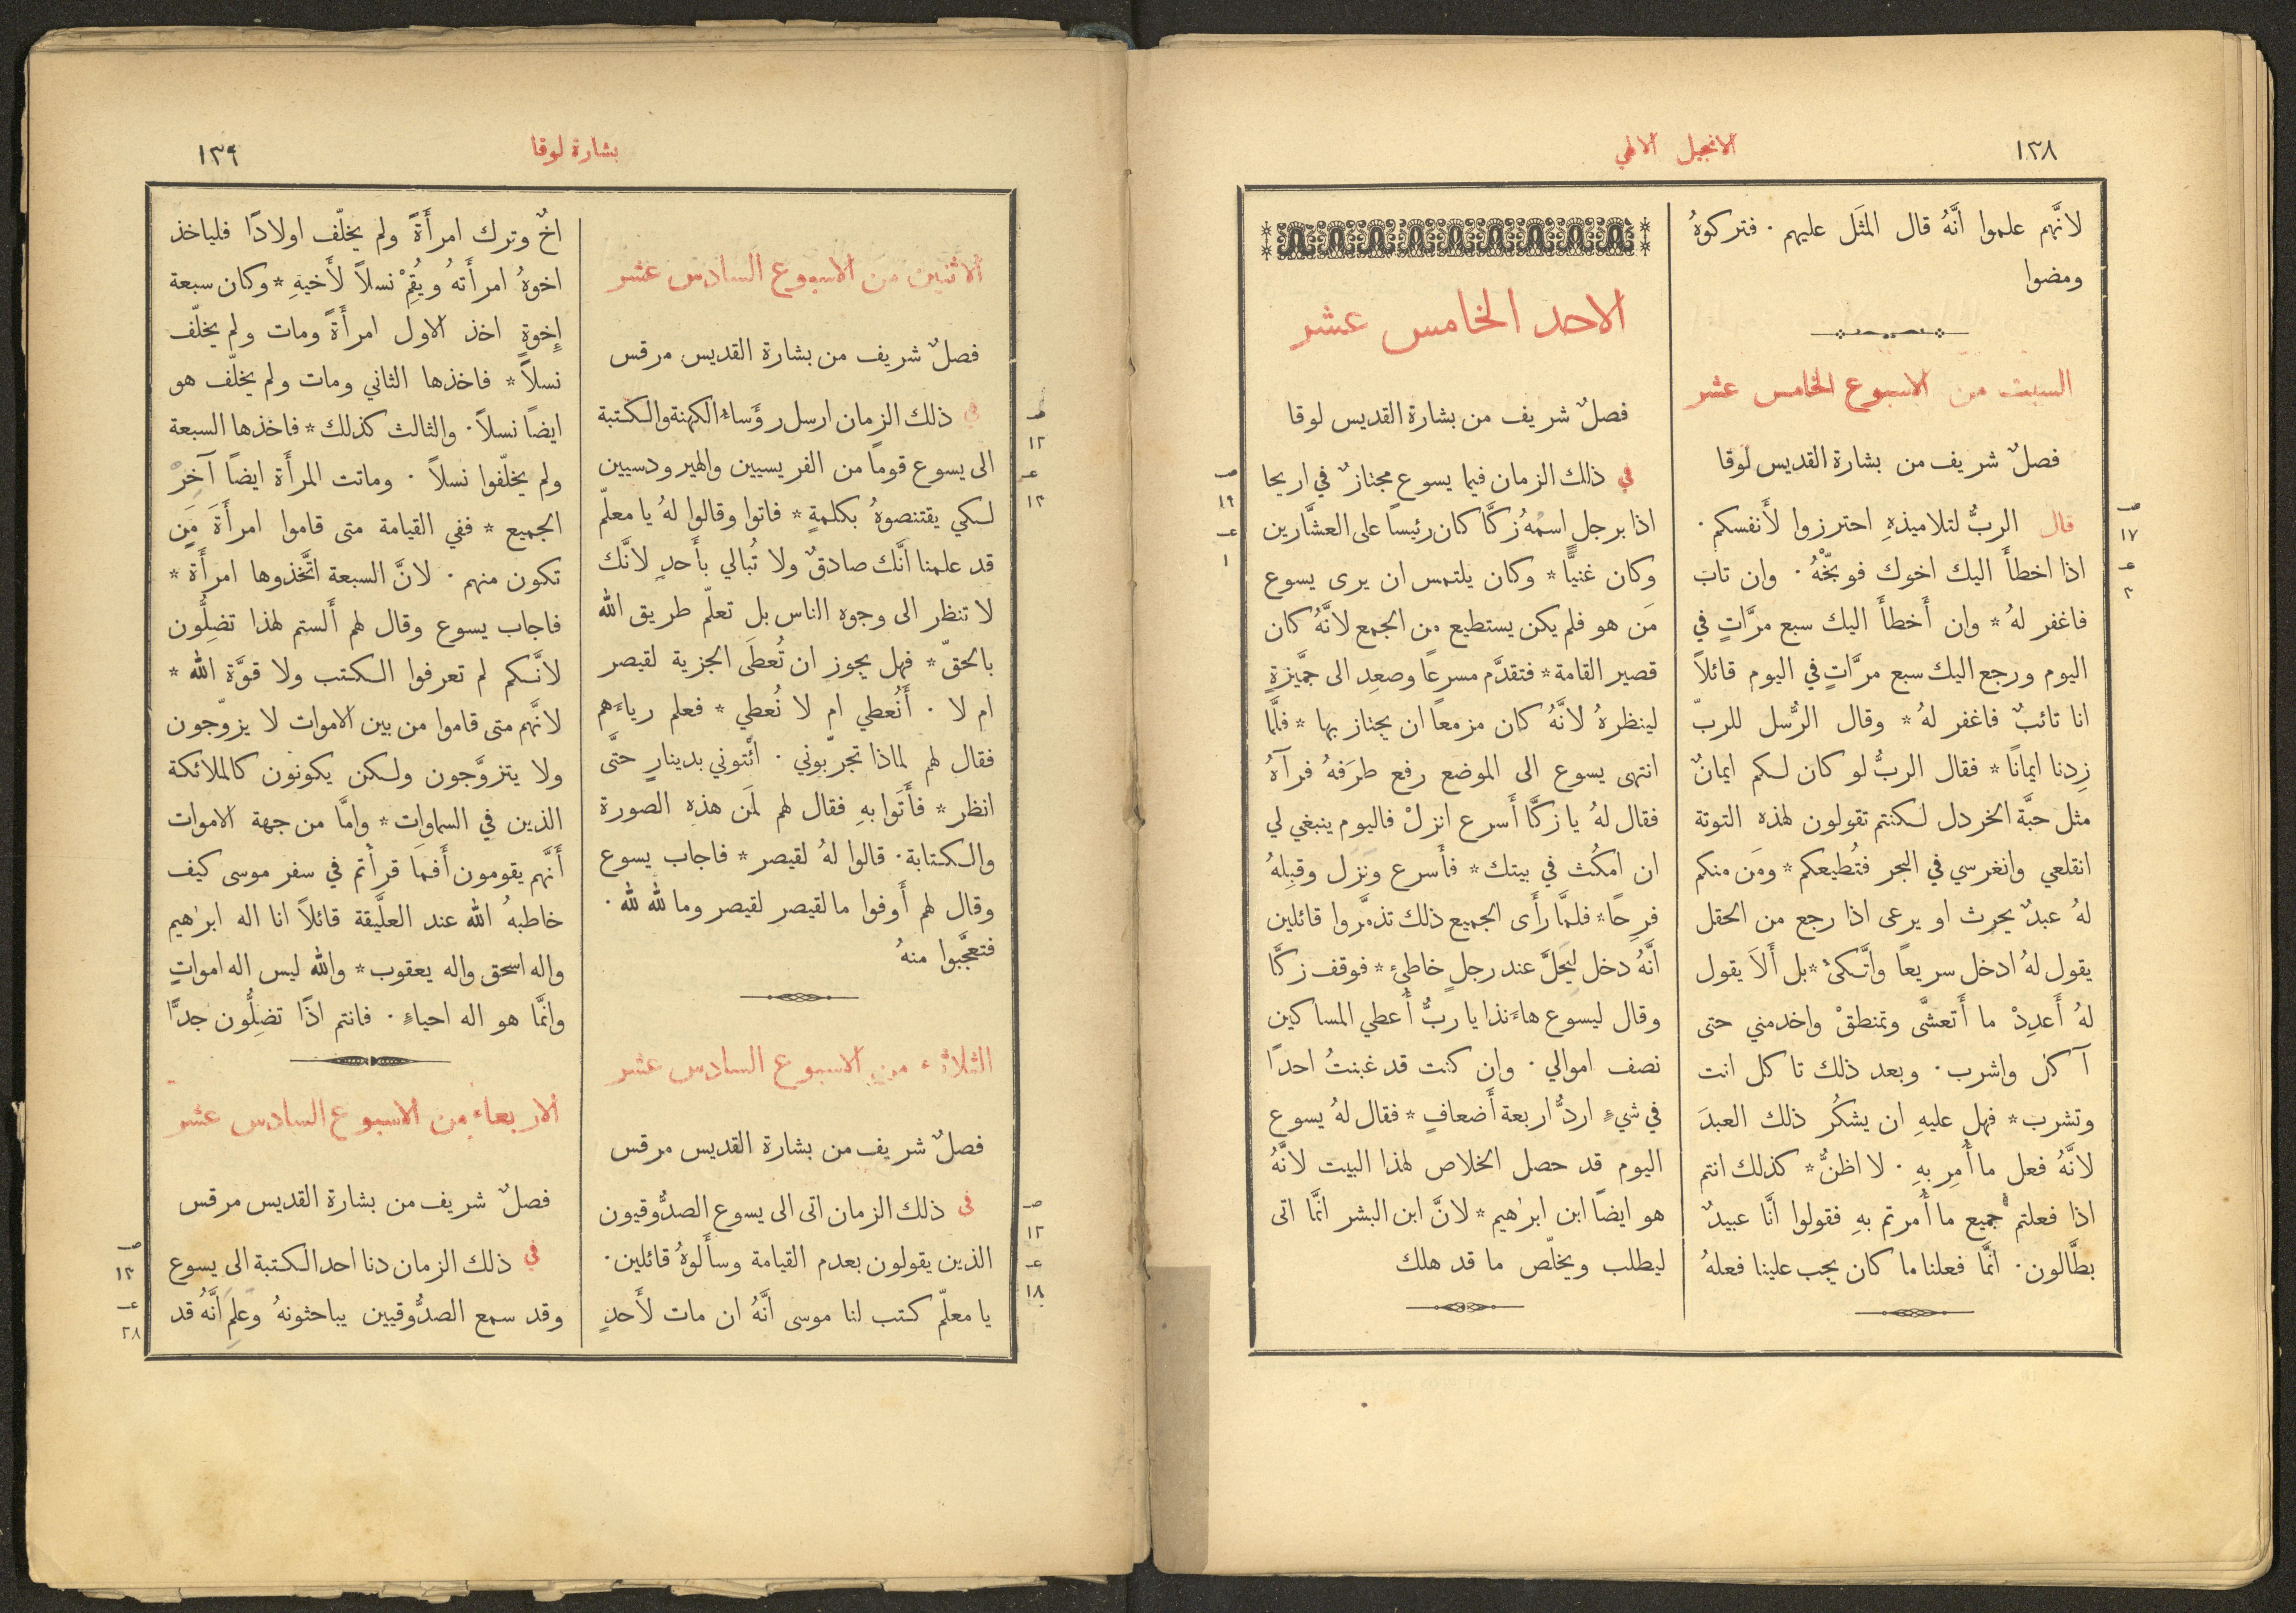 ١٣٨
الانجيل الالهي
لانَّهم علموا أنَّهُ قال المثَل عليهم ٠ فتركوهُ
ومضوا
السبت من الاسبوع الخامس عشر
فصلٌ شريف من بشارة القديس لوقا
ص
١٧
عـ
٣
قال الربُّ لتلاميذهِ احترزوا لأَنفسكم ٠
اذا اخطأَ اليك اخوك فوبّخْهُ ٠ وان تاب
فاغفر لهُ * وان أَخطأَ اليك سبع مرَّاتٍ في
اليوم ورجع اليك سبع مرَّاتٍ في اليوم قائلاً
انا تائبٌ فاغفر لهُ * وقال الرُّسل للربّ
زِدنا ايمانًا * فقال الربُّ لو كان لكم ايمانٌ
مثل حبَّة الخردل لكنتم تقولون لهذه التوتة
انقلعي وانغرسي في البحر فتُطيعكم * ومَن منكم
لهُ عبدٌ يحرث او يرعى اذا رجع من الحقل
يقول لهُ ادخل سريعاً واتَّكئْ * بل أَلاَ يقول
لهُ أَعدِدْ ما أَتعشَّى وتمنطقْ واخدمني حتى
آكل واشرب ٠ وبعد ذلك تاكل انت
وتشرب * فهل عليهِ ان يشكُر ذلك العبدَ
لانَّهُ فعل ما أُمِر بهِ ٠ لا اظنُّ * كذلك انتم
اذا فعلتم جميع ما أُمرتم بهِ فقولوا انَّا عبيدٌ
بطَّالون ٠ انَّما فعلنا ما كان يجب علينا فعلهُ
الاحد الخامس عشر
فصلٌ شريف من بشارة القديس لوقا
ص
١٩
عـ
١
في ذلك الزمان فيما يسوع مجتازٌ في اريحا
اذا برجلٍ اسمهُ زكَّا كان رئيساً على العشَّارين
وكان غنيًّا * وكان يلتمس ان يرى يسوع
مَن هو فلم يكن يستطيع من الجمع لانَّهُ كان
قصير القامة * فتقدَّم مسرعاً وصعِد الى جمَّيزةٍ
لينظرهُ لانَّهُ كان مزمعاً ان يجتاز بها * فلَّما
انتهى يسوع الى الموضع رفع طرَفهُ فرآهُ
فقال لهُ يا زكَّا أَسرع انزلْ فاليوم ينبغي لي
ان امكُث في بيتك * فأَسرع ونزل وقبِلهُ
فرِحًا * فلمَّا رأَى الجميع ذلك تذمَّروا قائلين
انَّهُ دخل ليَحِلَّ عند رجلٍ خاطئٍ * فوقف زكَّا
وقال ليسوع هاءَنذا يا ربُّ أُعطي المساكين
نصف اموالي ٠ وان كنت قد غبنتُ احدًا
في شيءٍ اردُّ اربعة أَضعافٍ * فقال لهُ يسوع
اليوم قد حصل الخلاص لهذا البيت لانَّهُ
هو ايضاً ابن ابرهيم * لانَّ ابن البشر انَّما اتى
ليطلب ويخلّص ما قد هلك
بشارة لوقا
١٣٩
الاثنين من الاسبوع السادس عشر
فصلٌ شريف من بشارة القديس مرقس
ص
١٢
عـ
١٣
في ذلك الزمان ارسل رؤَساءُ الكهنة والكتبة
الى يسوع قوماً من الفريسيين والهيرودسيين
لكي يقتنصوهُ بكلمةٍ * فاتوا وقالوا لهُ يا معلّم
قد علمنا انَّك صادقٌ ولا تُبالي بأَحدٍ لانَّك
لا تنظر الى وجوه الناس بل تعلّم طريق الله
بالحقّ * فهل يجوز ان تُعطَى الجزية لقيصر
ام لا ٠ أَنُعطي ام لا نُعطي * فعلم رياءَهم
فقال لهم لماذا تجرّبوني ٠ ائْتوني بدينارٍ حتَّى
انظر * فأَتَوا بهِ فقال لهم لمَن هذه الصورة
والكتابة ٠ قالوا لهُ لقيصر * فاجاب يسوع
وقال لهم أَوفوا ما لقيصر لقيصر وما لله لله ٠
فتعجَّبوا منهُ
الثلاثاء من الاسبوع السادس عشر
فصلٌ شريف من بشارة القديس مرقس
ص
١٢
عـ
١٨
في ذلك الزمان اتى الى يسوع الصدُّوقيون
الذين يقولون بعدم القيامة وسأَلوهُ قائلين ٠
يا معلّم كتب لنا موسى انَّهُ ان مات لأَحدٍ
اخٌ وترك امرأَةً ولم يخلّف اولادًا فلياخذ
اخوهُ امرأَتهُ ويُقِمْ نسلاً لأَخيهِ * وكان سبعة
إِخوةٍ اخذ الاول امرأَةً ومات ولم يخلّف
نسلاً * فاخذها الثاني ومات ولم يخلّف هو
ايضاً نسلاً ٠ والثالث كذلك * فاخذها السبعة
ولم يخلّفوا نسلاً ٠ وماتت المرأَة ايضاً آخِرَ
الجميع * ففي القيامة متى قاموا امرأَةَ مَنْ
تكون منهم ٠ لانَّ السبعة اتَّخذوها امرأَة *
فاجاب يسوع وقال لهم أَلستم لهذا تضلُّون
لانَّكم لم تعرفوا الكتب ولا قوَّة الله *
لانَّهم متى قاموا من بين الاموات لا يزوّجون
ولا يتزوَّجون ولكن يكونون كالملائكة
الذين في السماوات * وامَّا من جهة الاموات
أَنَّهم يقومون أَفما قرأْتم في سفر موسى كيف
خاطبهُ الله عند العلَّيقة قائلاً انا اله ابرهيم
واله اسحق واله يعقوب * والله ليس اله امواتٍ
وانَّما هو اله احياءٍ ٠ فانتم اذًا تضِلُّون جدًّا
الاربعاء من الاسبوع السادس عشر
فصلٌ شريف من بشارة القديس مرقس
ص
١٢
عـ
٢٨
في ذلك الزمان دنا احد الكتبة الى يسوع
وقد سمع الصدُّوقيين يباحثونهُ وعلِم انَّهُ قد